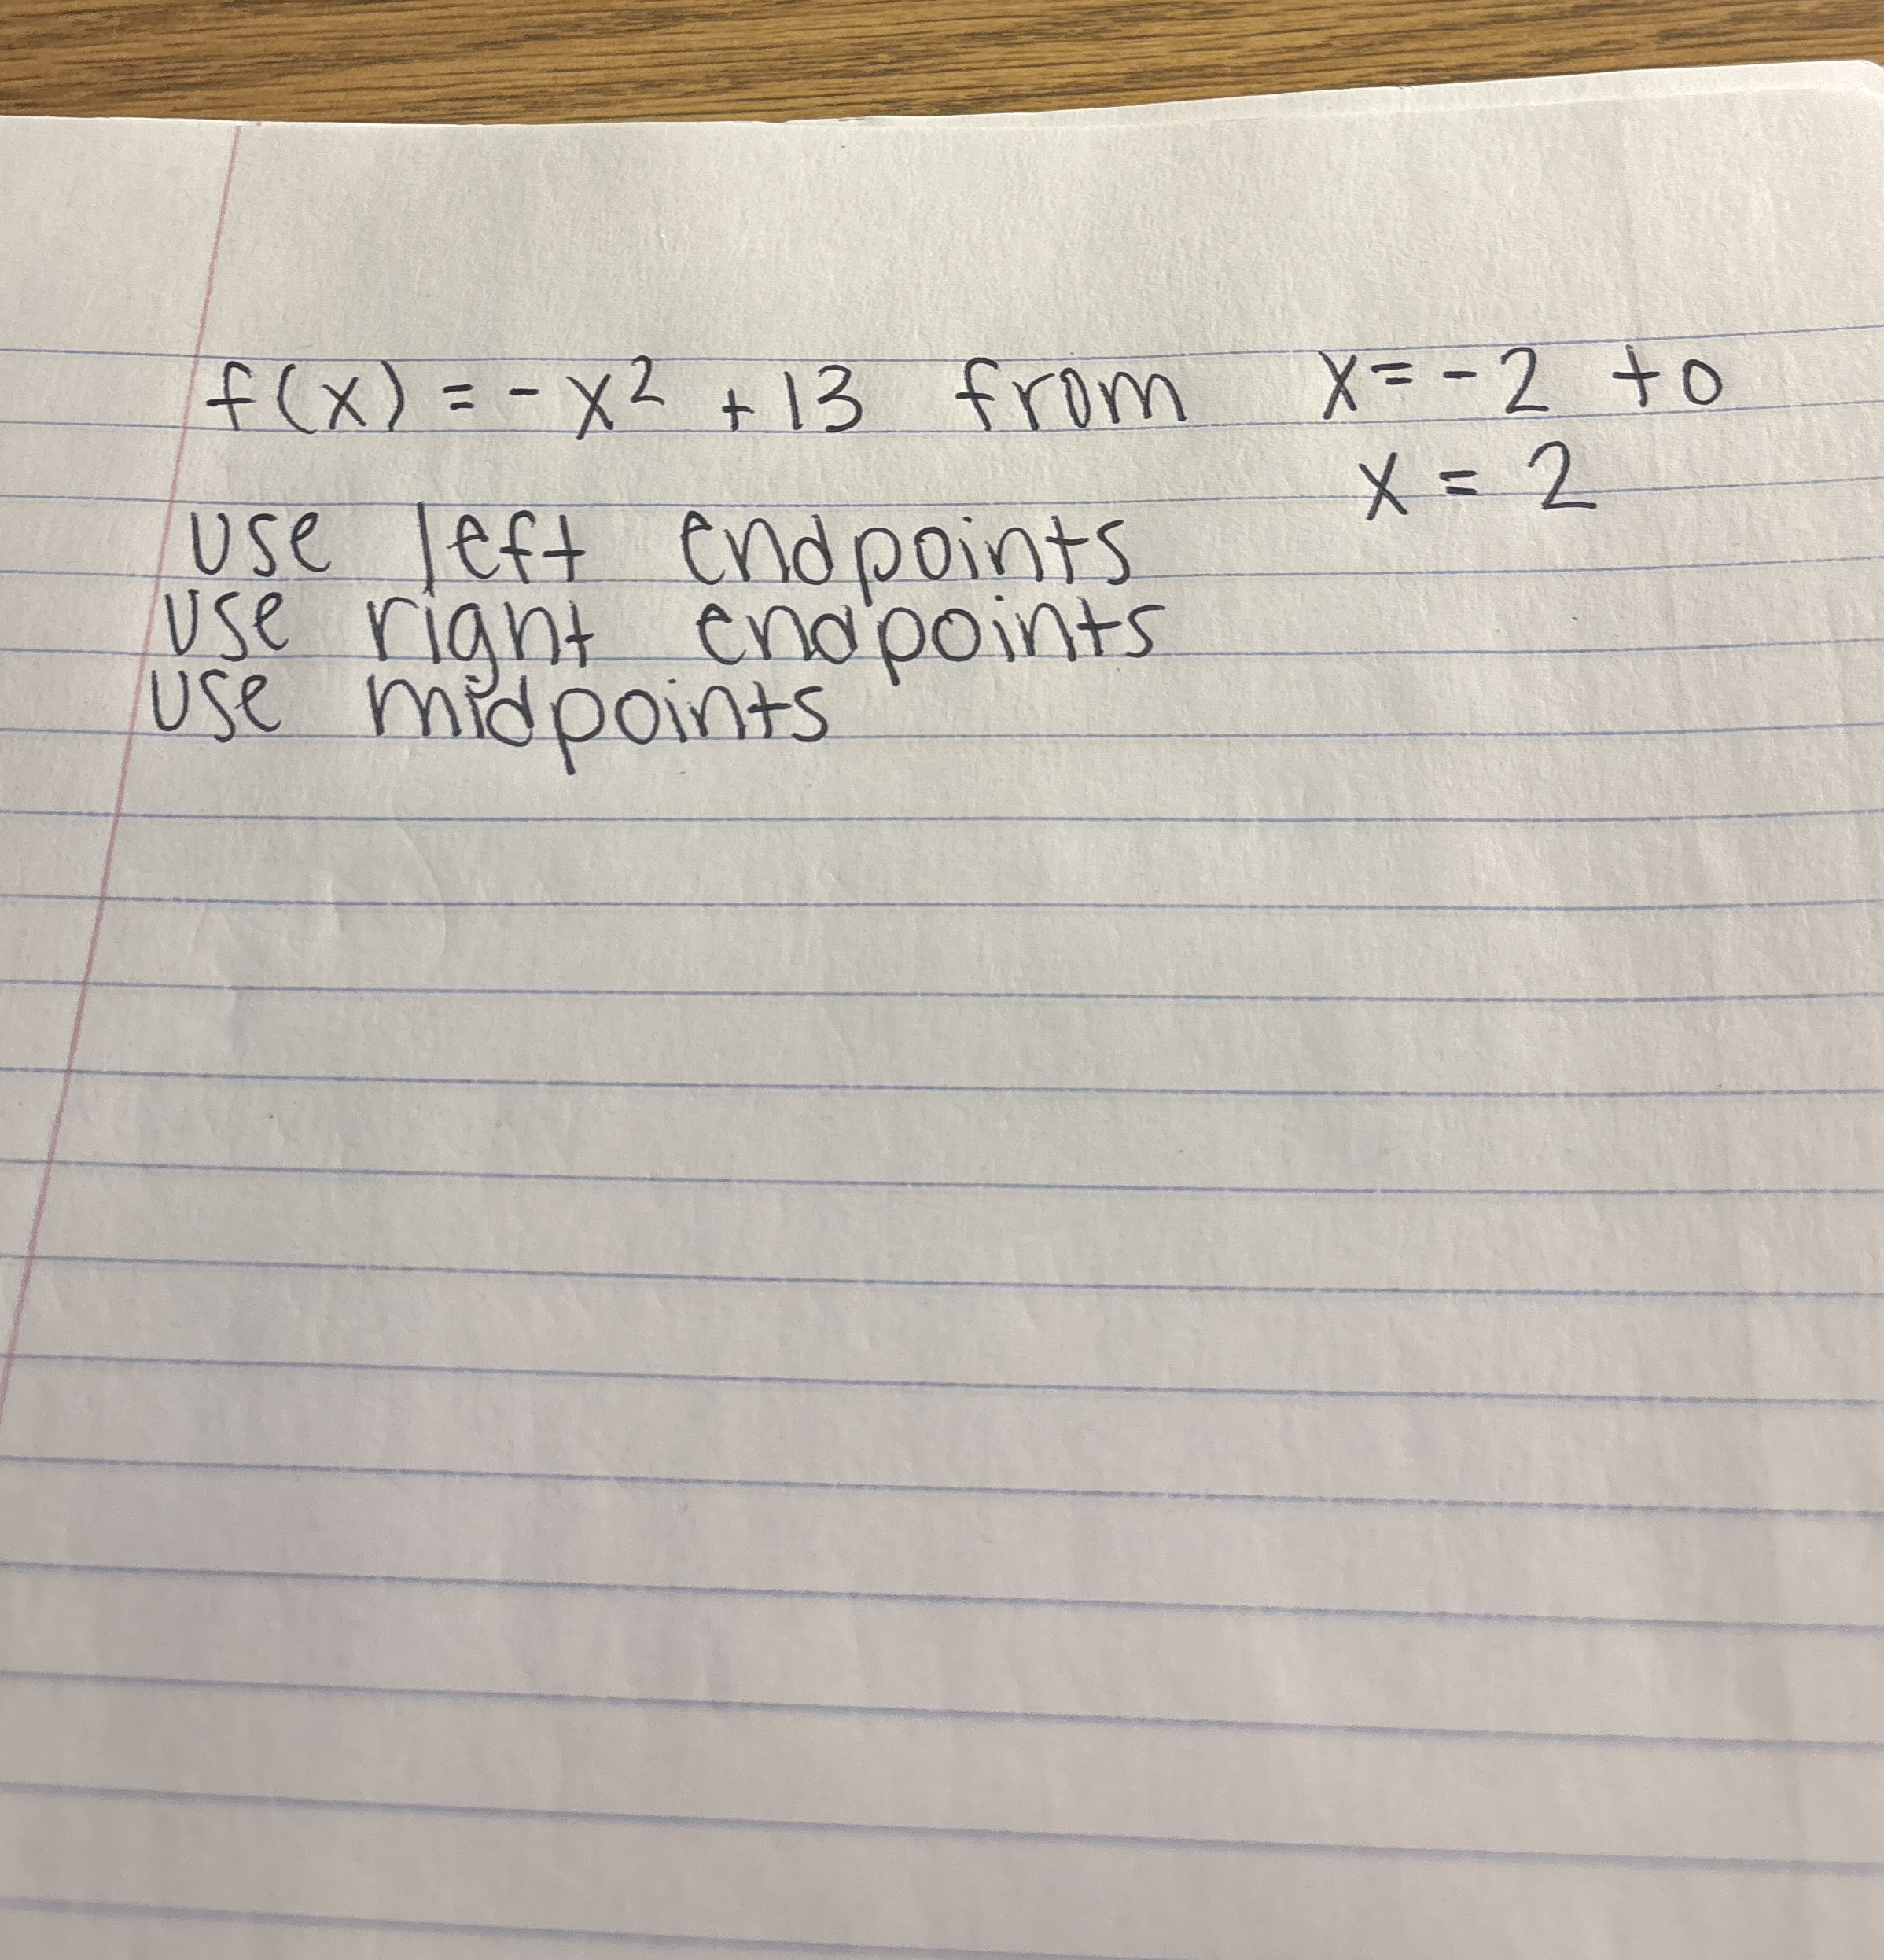 f(x) = -x² + 13 from x = -2 to
x = 2
use left endpoints
use right endpoints
use midpoints